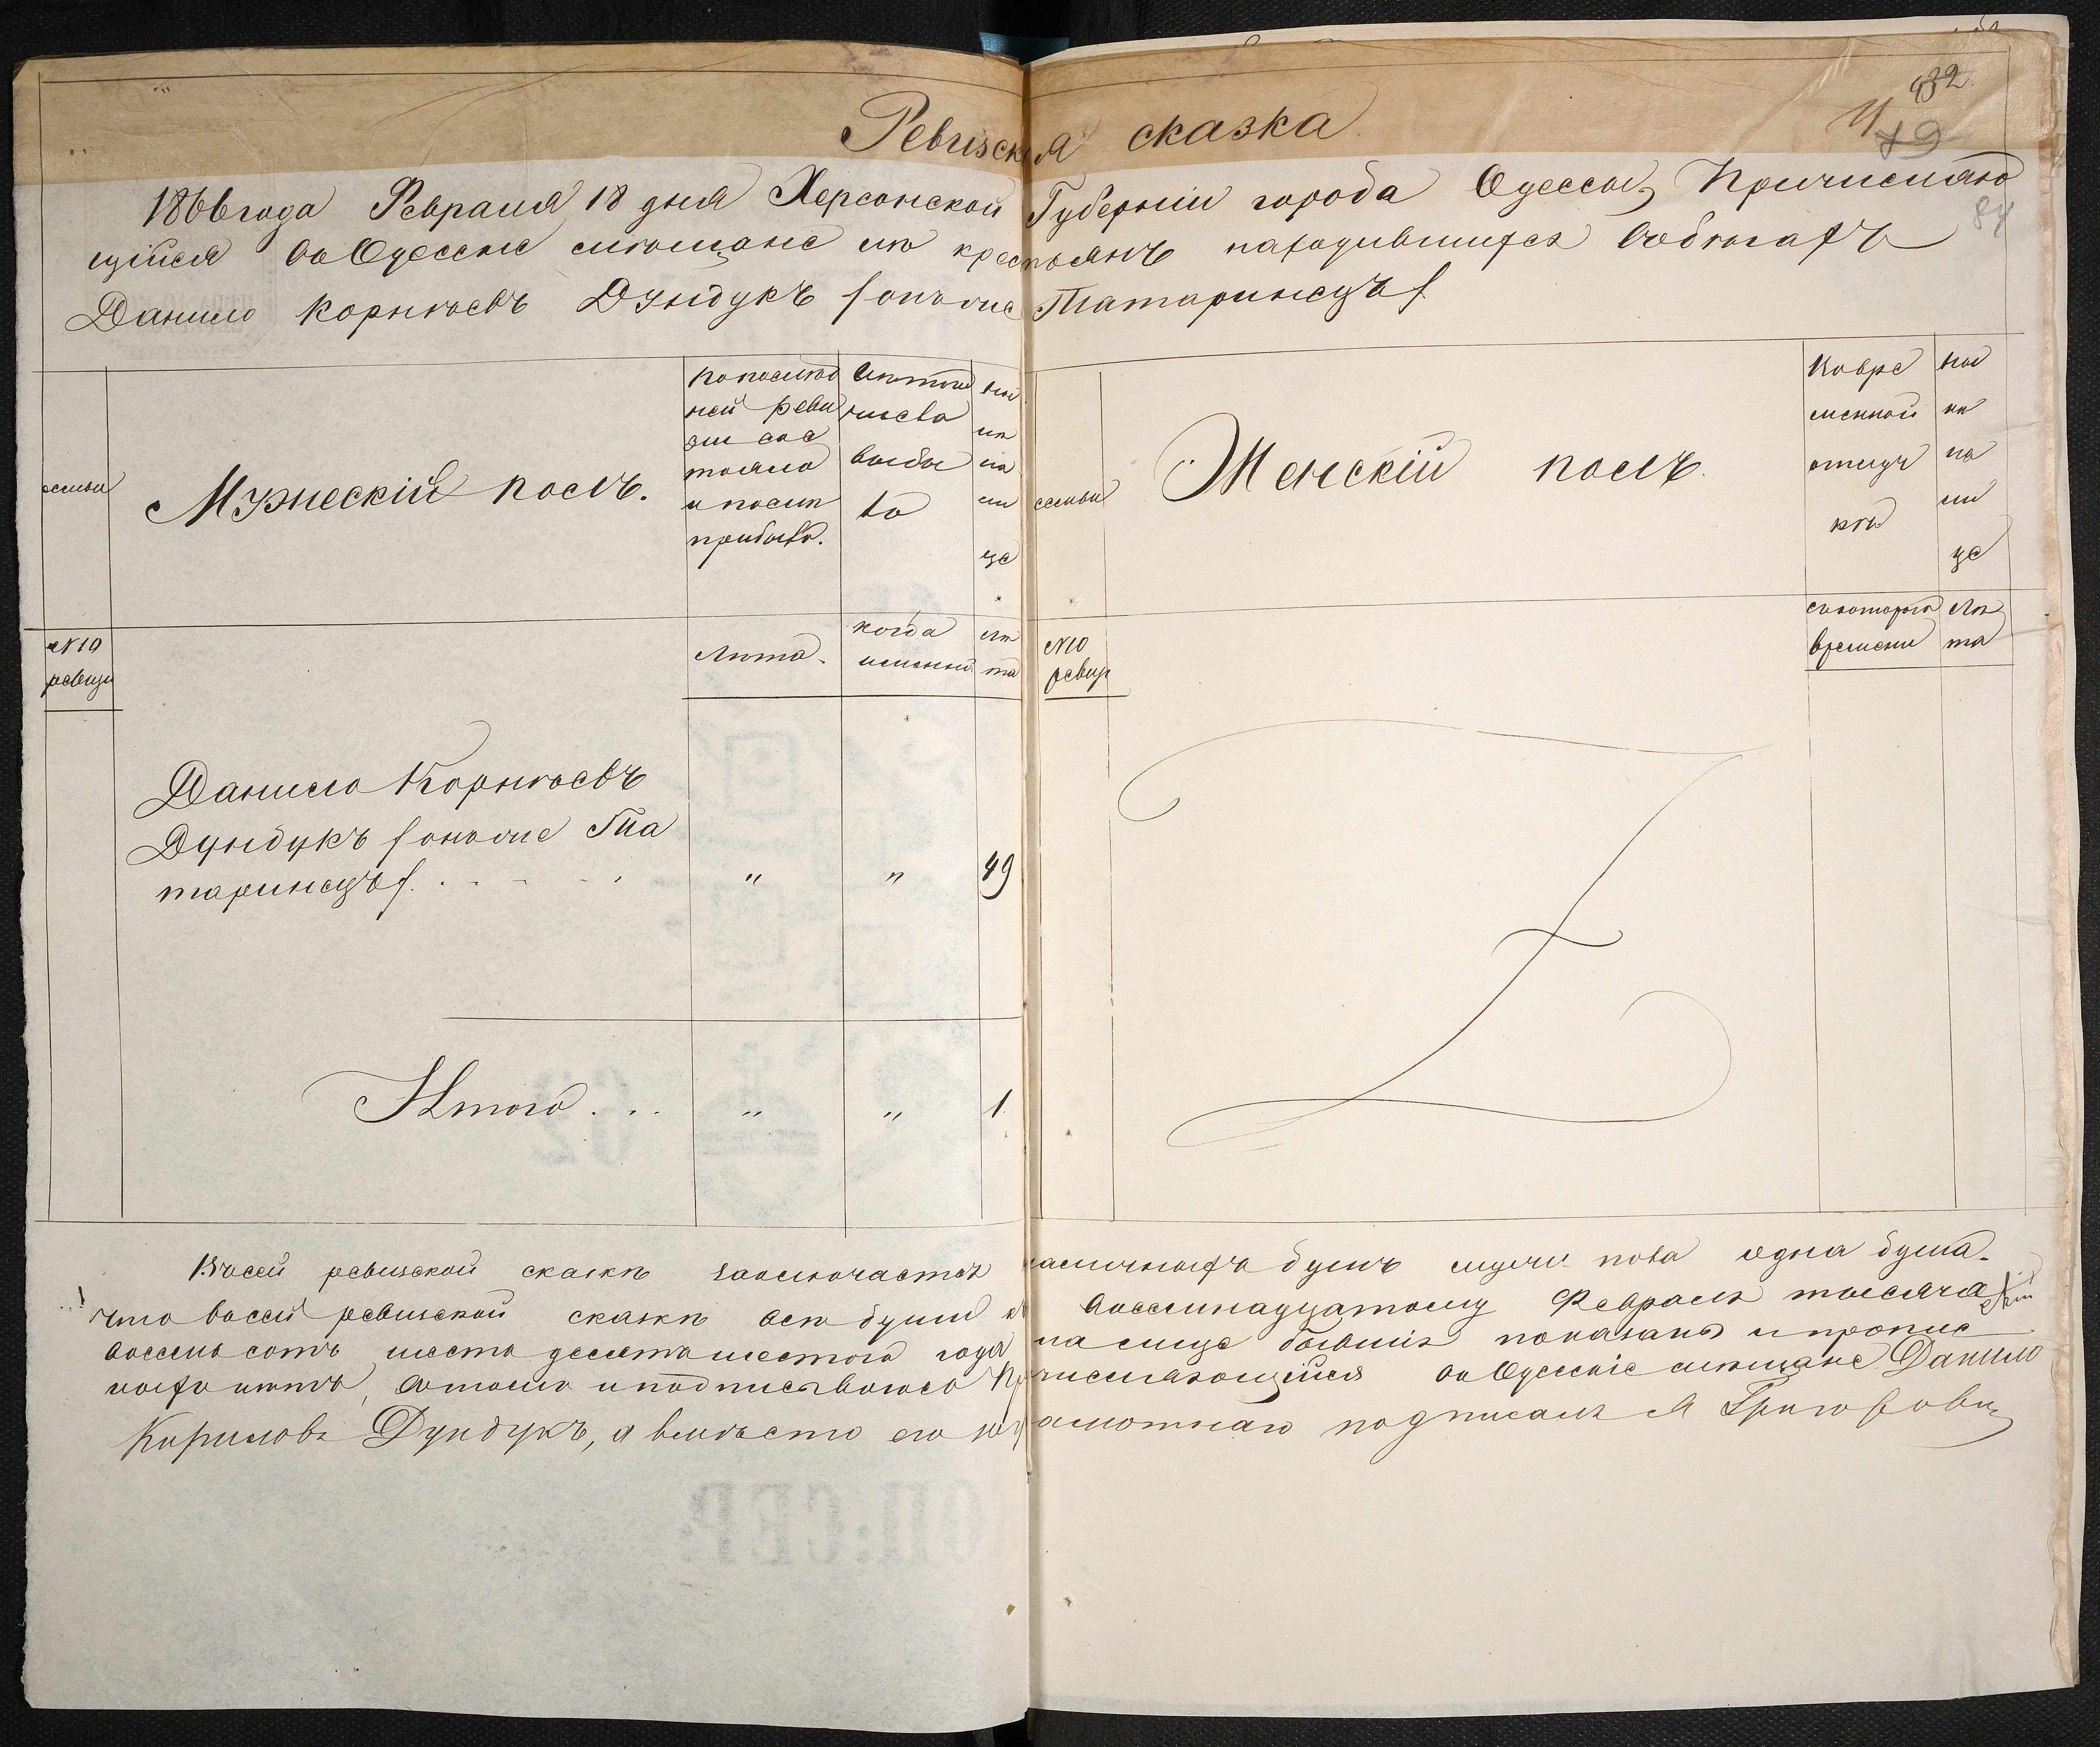 432.
79
84
Ревизская сказка
1866 года Февраля 18 дня Херсонской Губерніи города Одессы, Причисляю
щійся во Одесскіе мещане из крестьянъ находившихся въ бегахъ
Данило Корнѣевъ Дундукъ (онъ же Татаринецъ)
семьи
Мужескій полъ.
По послѣд
ней реви
зіи сос
тояло
и послѣ
прибыло.
Изъ того
числа
выбы
ло
Ны
нѣ
на
ли
це
семьи
Женскій полъ.
Во вре
менной
отлуч
кѣ
Ны
нѣ
на
ли
це
№ 10
ревизи
Лѣта.
когда
именно.
лѣ
та
№ 10
ревиз
съ котораго
времени
Лѣ
та
Данило Корнѣевъ
Дундукъ (онъ же Та
таринецъ) . . . . " " 49
Итого . . . " " 1
В сей ревизской сказкѣ заключается наличныхъ душъ мужеска пола одна душа.
что в сей ревизской сказкѣ все души к восемнадцатому Февраля тысяча
восемь сотъ шестьдесятъ шестого года на лице бывшіе показаны и пропис
ныхъ нѣтъ, въ томъ и подписываюсь Причисляющійся въ Одесскіе мещане Данило
Кириловъ Дундукъ, а вместо его неграмотнаго подписалъ Я Григорович